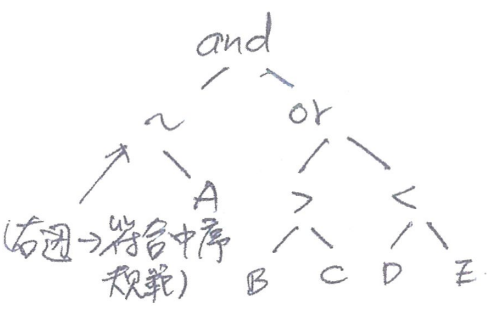 and
~ or
A > <
(右邊→符合中序
規範)
B C D E